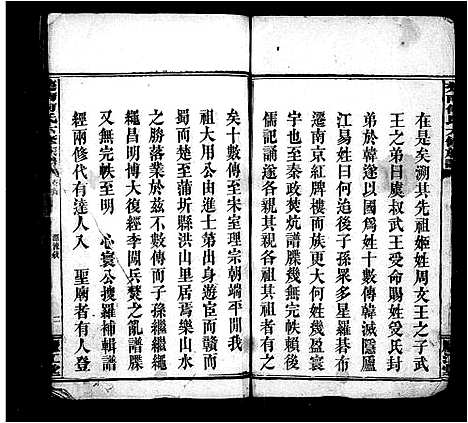 在是矣溯其先祖姬姓周文王之子武
王之弟曰唐叔武王受命賜姓受氏封
於韓遂以國為姓十數傳韓滅隱廬
江易姓曰何迨後子孫眾多星羅碁布
遷南京紅牌樓而族更大何姓幾盈寰
宇矣至秦政焚炕譜牒幾無完帙賴有
儒記誦遂各親其親各祖其祖者有之
矣十數傳至宋室理宗朝端平間我
祖有伯達由進士弟出身遊宦而贛而
蜀而楚至蒲圻縣洪山里居焉樂山水
之勝落業於茲不數傳而子孫繼繼繩
繩昌明博大復經李闖兵燹之亂譜牒
又無完帙至明 心寰公搜羅補輯譜
經兩修代有達人入 聖廟者有人登